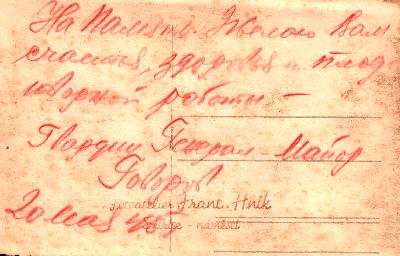 На память. Желаю Вам
счастья, здоровья и плодо
творной работы –
Гвардии Генерал-Майор
Говоров
20 мая
Fotoatelier Franc. Hnik
- náměstí